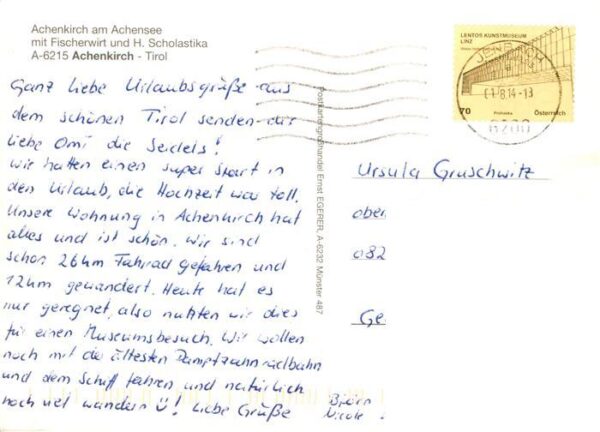 Achenkirch am Achensee
mit Fischerwirt und H. Scholastika
A-6215 Achenkirch - Tirol
Ganz liebe Urlaubsgrüße aus
dem schönen Tirol senden dir
liebe Omi die Seidels!
Wir hatten einen super Start in
den Urlaub, die Hochzeit war toll.
Unsere Wohnung in Achenkirch hat
alles und ist schön. Wir sind
schon 26km Fahrrad gefahren und
12km gewandert. Heute hat es
nur geregnet, also nutzten wir dies
für einen Museumsbesuch. Wir wollen
noch mit die ältesten Dampfzahnradbahn
und dem Schiff fahren und natürlich
noch viel wandern ü! Liebe Grüße
Björn
Nicole!
Postkartengroßhandel Ernst EGERER, A-6232 Münster 487
LENTOS KUNSTMUSEUM
LINZ
70
Österreich
JENBACH
01.8.14-13
6200
Ursula Gruschwitz
ober
082
Ge